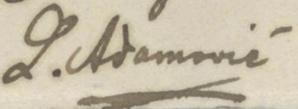 L. Adamović